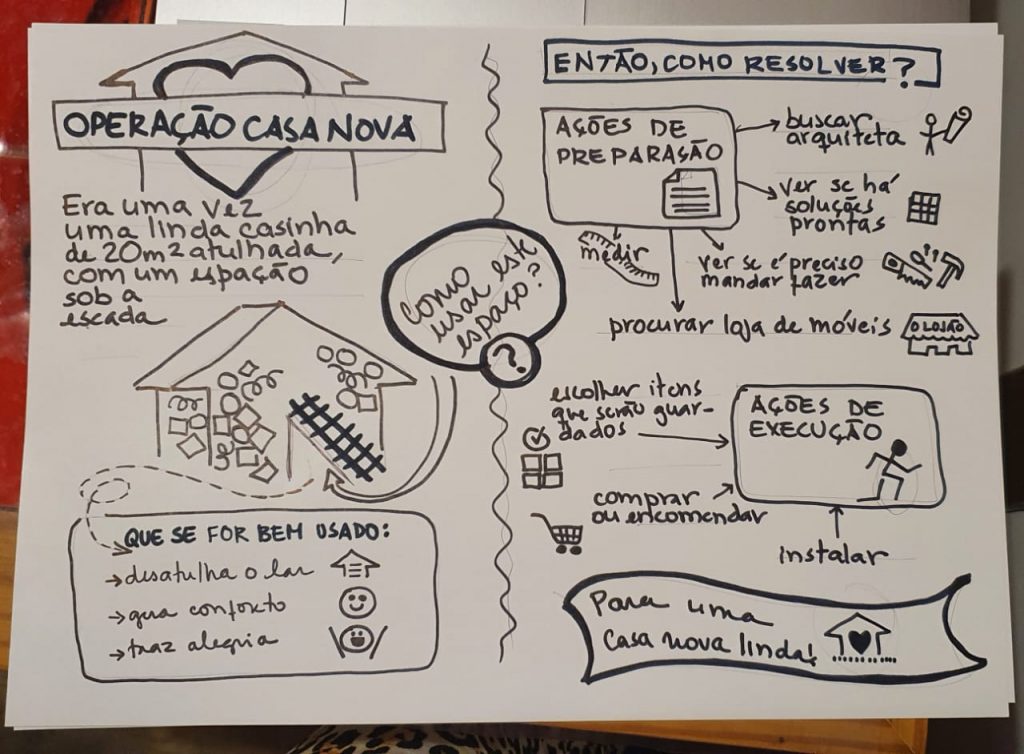 OPERAÇÃO CASA NOVA
Era uma vez
uma linda casinha
de 20m² atulhada,
com um espação
sob a
escada
Como
usar este
espaço?
?
QUE SE FOR BEM USADO:
→ desatulha o lar
→ gera conforto
→ traz alegria
ENTÃO, COMO RESOLVER?
AÇÕES DE
PREPARAÇÃO
buscar
arquiteta
ver se há
soluções
prontas
medir
ver se é preciso
mandar fazer
procurar loja de móveis
O LOJÃO
escolher itens
que serão guar-
dados
AÇÕES DE
EXECUÇÃO
comprar
ou encomendar
instalar
Para uma
casa nova linda!